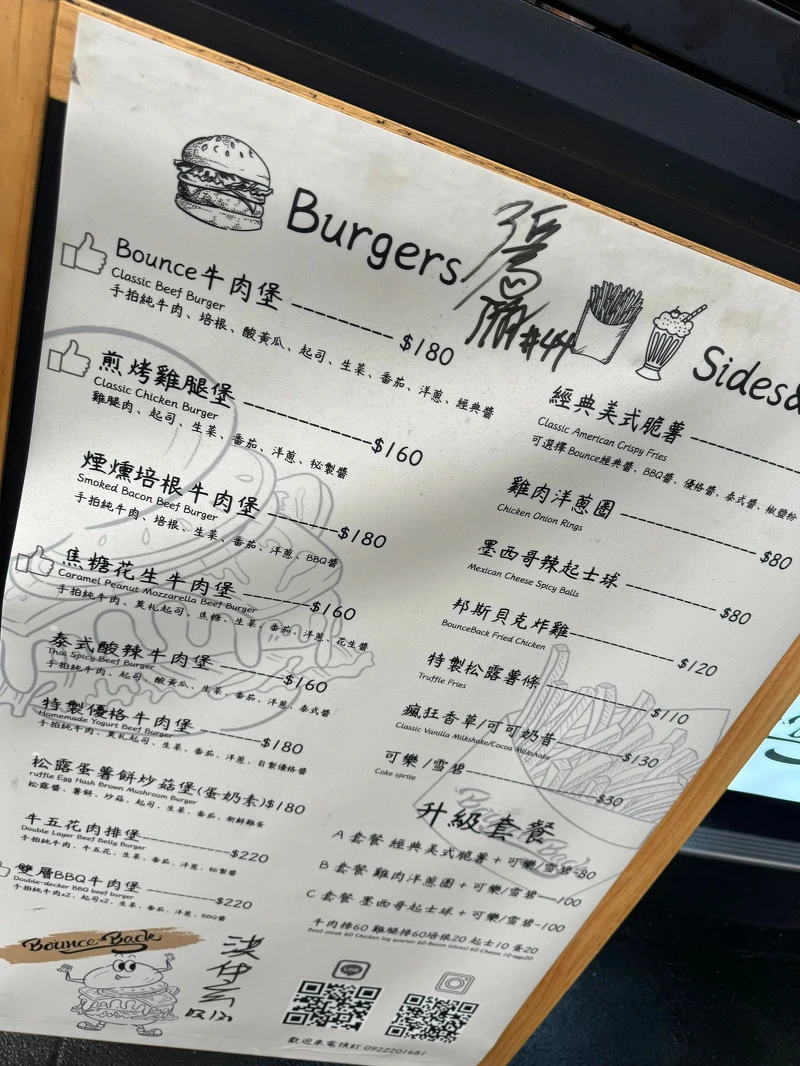 Burgers
Bounce牛肉堡 $180
Classic Beef Burger
手拍純牛肉、培根、酸黃瓜、起司、生菜、番茄、洋蔥、經典醬
煎烤雞腿堡 $160
Classic Chicken Burger
雞腿肉、起司、生菜、番茄、洋蔥、秘製醬
煙燻培根牛肉堡 $180
Smoked Bacon Beef Burger
手拍純牛肉、培根、生菜、番茄、洋蔥、BBQ醬
焦糖花生牛肉堡 $160
Caramel Peanut Mozzarella Beef Burger
手拍純牛肉、莫札起司、焦糖、生菜、番茄、洋蔥、花生醬
泰式酸辣牛肉堡 $160
Thai Spicy Beef Burger
手拍純牛肉、起司、酸黃瓜、生菜、番茄、洋蔥、泰式醬
特製優格牛肉堡 $180
Homemade Yogurt Beef Burger
手拍純牛肉、莫札起司、生菜、番茄、洋蔥、自製優格醬
松露蛋薯餅炒菇堡(蛋奶素)$180
ruffle Egg Hash Brown Mushroom Burger
松露醬、薯餅、炒菇、起司、生菜、番茄、新鮮雞蛋
牛五花肉排堡 $220
Double Layer Beef Belly Burger
手拍純牛肉、牛五花、生菜、番茄、洋蔥、松製醬
雙層BBQ牛肉堡 $220
Double-decker BBQ beef burger
手拍純牛肉x2、起司x2、生菜、番茄、洋蔥、BBQ醬
Bounce Back
#44
Sides&
經典美式脆薯
Classic American Crispy Fries
可選擇Bounce經典醬、BBQ醬、優格醬、泰式醬、椒鹽粉
雞肉洋蔥圈 $80
Chicken Onion Rings
墨西哥辣起士球 $80
Mexican Cheese Spicy Balls
邦斯貝克炸雞 $120
BounceBack Fried Chicken
特製松露薯條 $110
Truffle Fries
瘋狂香草/可可奶昔 $130
Classic Vanilla Milkshake/Cocoa Milkshake
可樂/雪碧 $30
Coke sprite
升級套餐
A 套餐 經典美式脆薯+可樂/雪碧 80
B 套餐 雞肉洋蔥圈+可樂/雪碧 100
C 套餐 墨西哥起士球+可樂/雪碧 100
牛肉排60 雞腿排60培根20 起士10 蛋20
Beef steak 60 Chicken leg quarter 60 Bacon (slices) 60 Cheese 10 egg20
LINE
歡迎來電預訂:0922201681